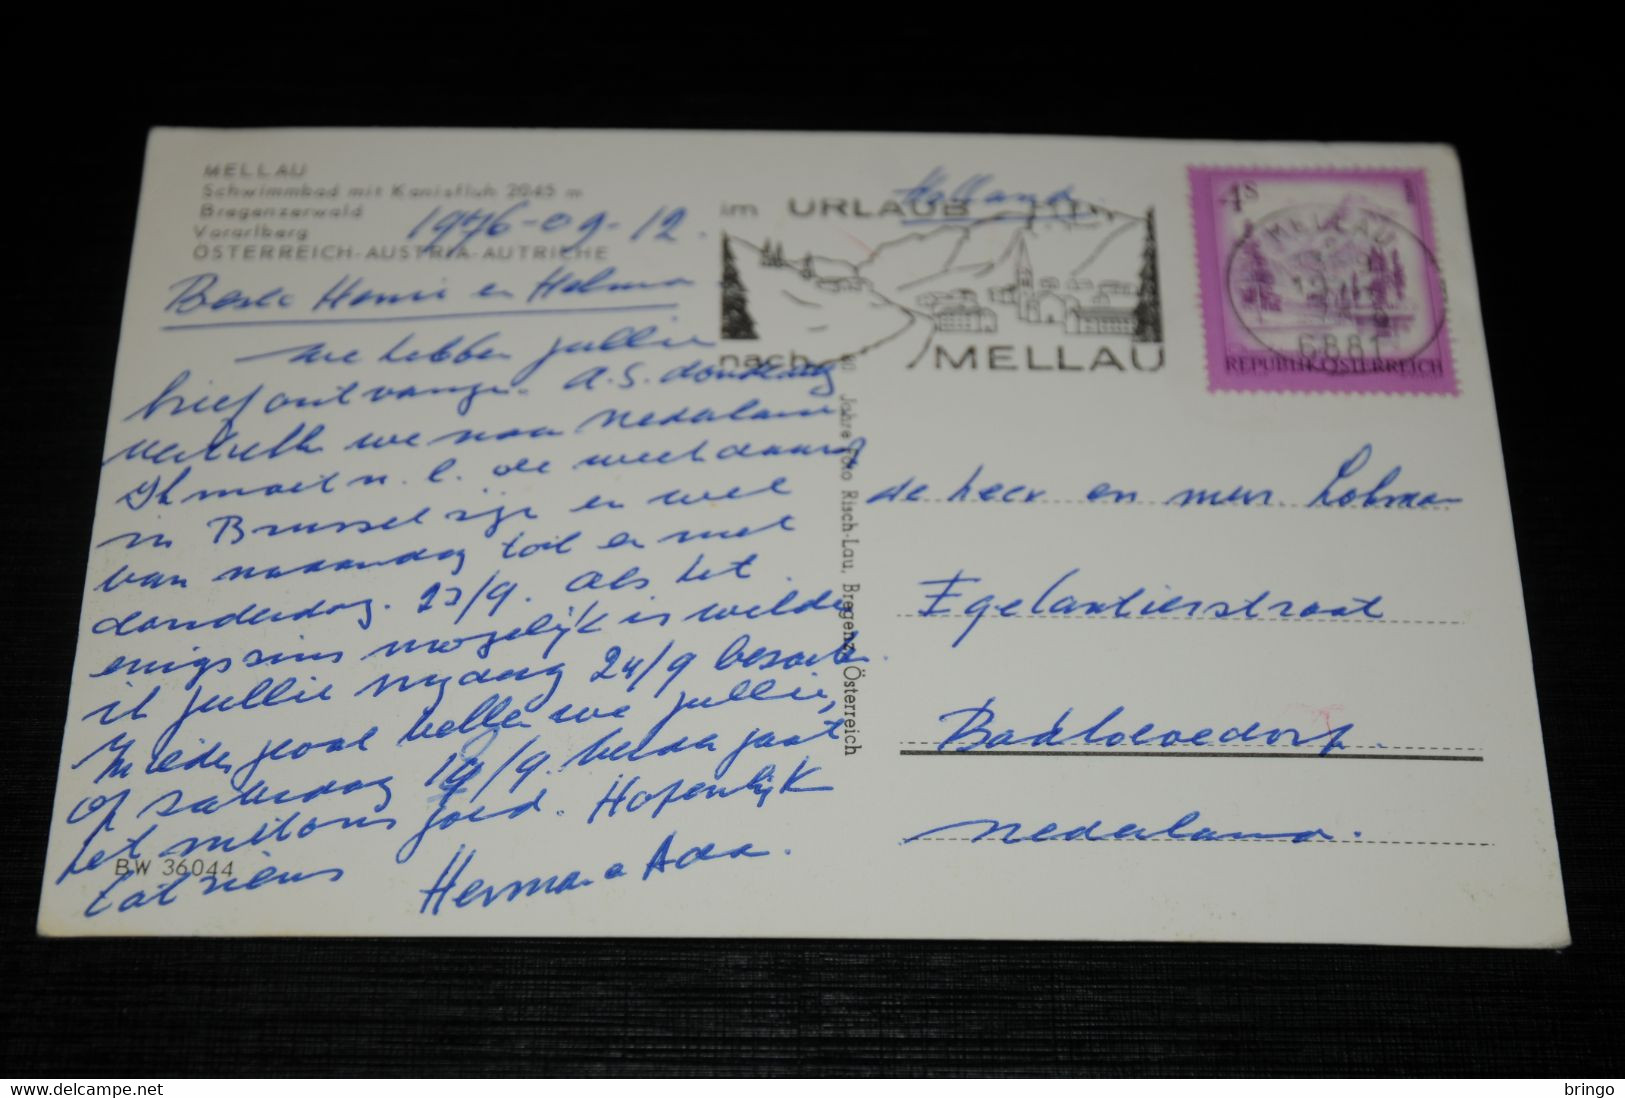 MELLAU
Schwimmbad mit Kanisfluh 2045 m
Bregenzerwald
Vorarlberg
ÖSTERREICH-AUSTRIA-AUTRICHE
1976-09-12.
Beste Henri en Helma
we hebben jullie
brief ontvangen. A.S. donderdag
vertrekken we naar Nederland
Ik moet n.l. de week daarop
in Brussel zijn en wel
van maandag tot en met
donderdag. 23/9. Als het
enigszins mogelijk is wilde
ik jullie vrijdag 24/9 bezoeken.
In ieder geval bellen we jullie,
op zaterdag 18/9. beiden gaat
het met ons goed. Hopenlijk
tot ziens
Herman en Ada.
BW 36044
Jahre Foto Risch-Lau, Bregenz, Österreich
Holland
im URLAUB
nach MELLAU
4S
MELLAU
6881
REPUBLIK ÖSTERREICH
de heer en mevr. Lohman
Egelantierstraat
Badhoevedorp.
Nederland.
delcampe.net
bringo